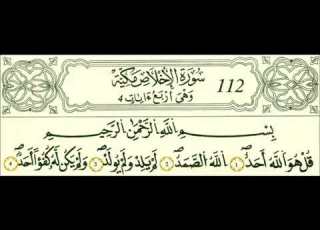 سُورَةُ الْإِخْلَاصِ مَكِّيَّة 112
وَهِيَ أَرْبَعُ ءَايَاتٍ 4
بِسْمِ اللَّهِ الرَّحْمَٰنِ الرَّحِيمِ
قُلْ هُوَ اللَّهُ أَحَدٌ ١ اللَّهُ الصَّمَدُ ٢ لَمْ يَلِدْ وَلَمْ يُولَدْ ٣ وَلَمْ يَكُن لَّهُ كُفُوًا أَحَدٌ ٤